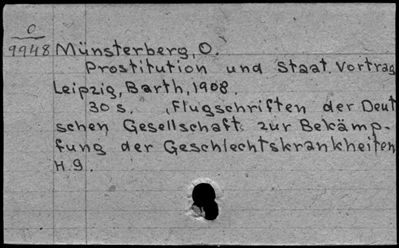 O
9948 Münsterberg, O.
Prostitution und Staat. Vortrag
Leipzig, Barth, 1908.
30 S. (Flugschriften der Deut
schen Gesellschaft zur Bekämp-
fung der Geschlechtskrankheiten
H.9.